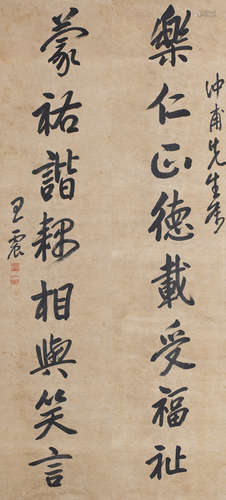 沖甫先生属
樂仁止德載受福祉
蒙祐諧耦相與笑言
王震